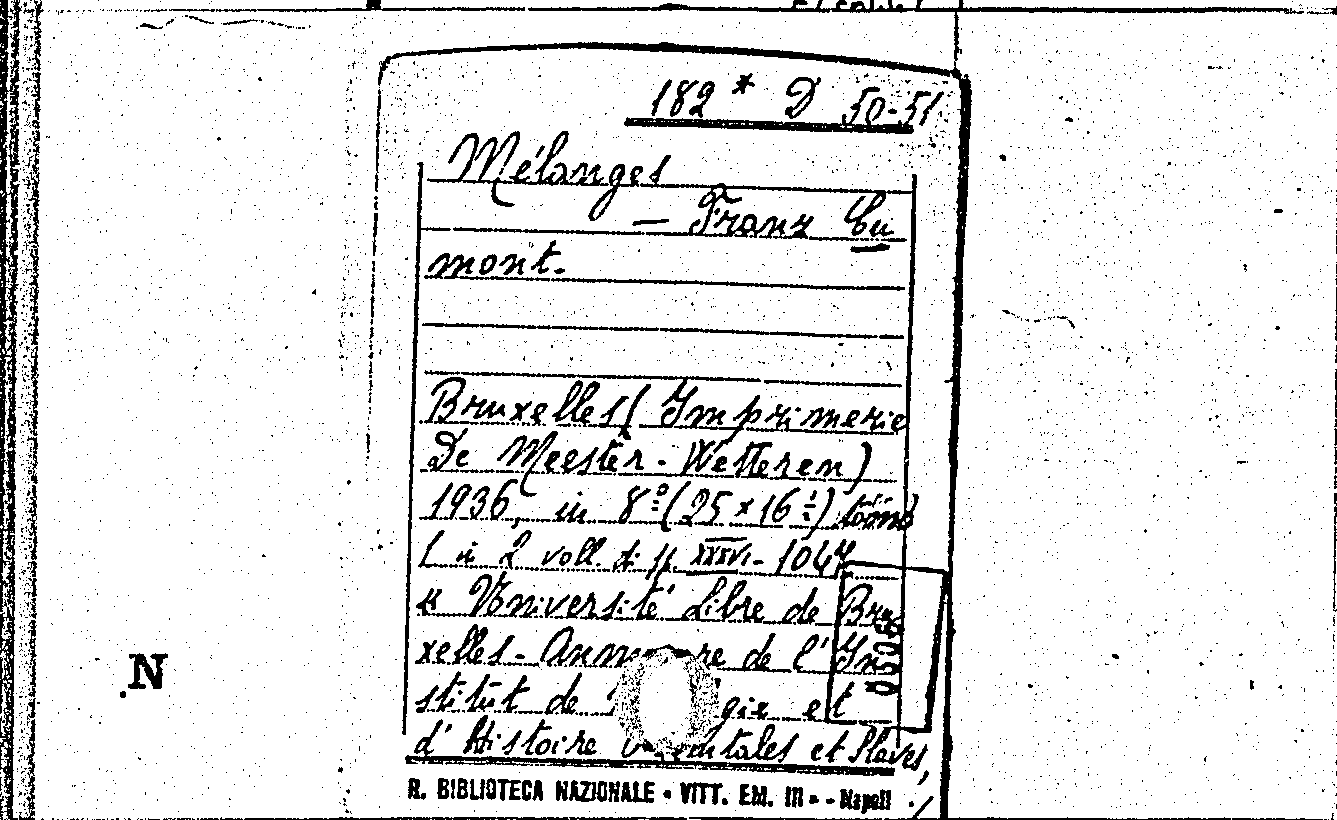 182 * D 50-51
Mélanges
— Franz Cu
mont.
Bruxelles (Imprimerie
De Meester - Wetteren)
1936, in 8º (25 × 16 ½)
2 voll. di pp. XXXVI - 1047
« Université Libre de Bru
xelles - de l'In
stitut de et
d'Histoire et Slaves,
R. BIBLIOTECA NAZIONALE - VITT. EM. III - - Napoli
N